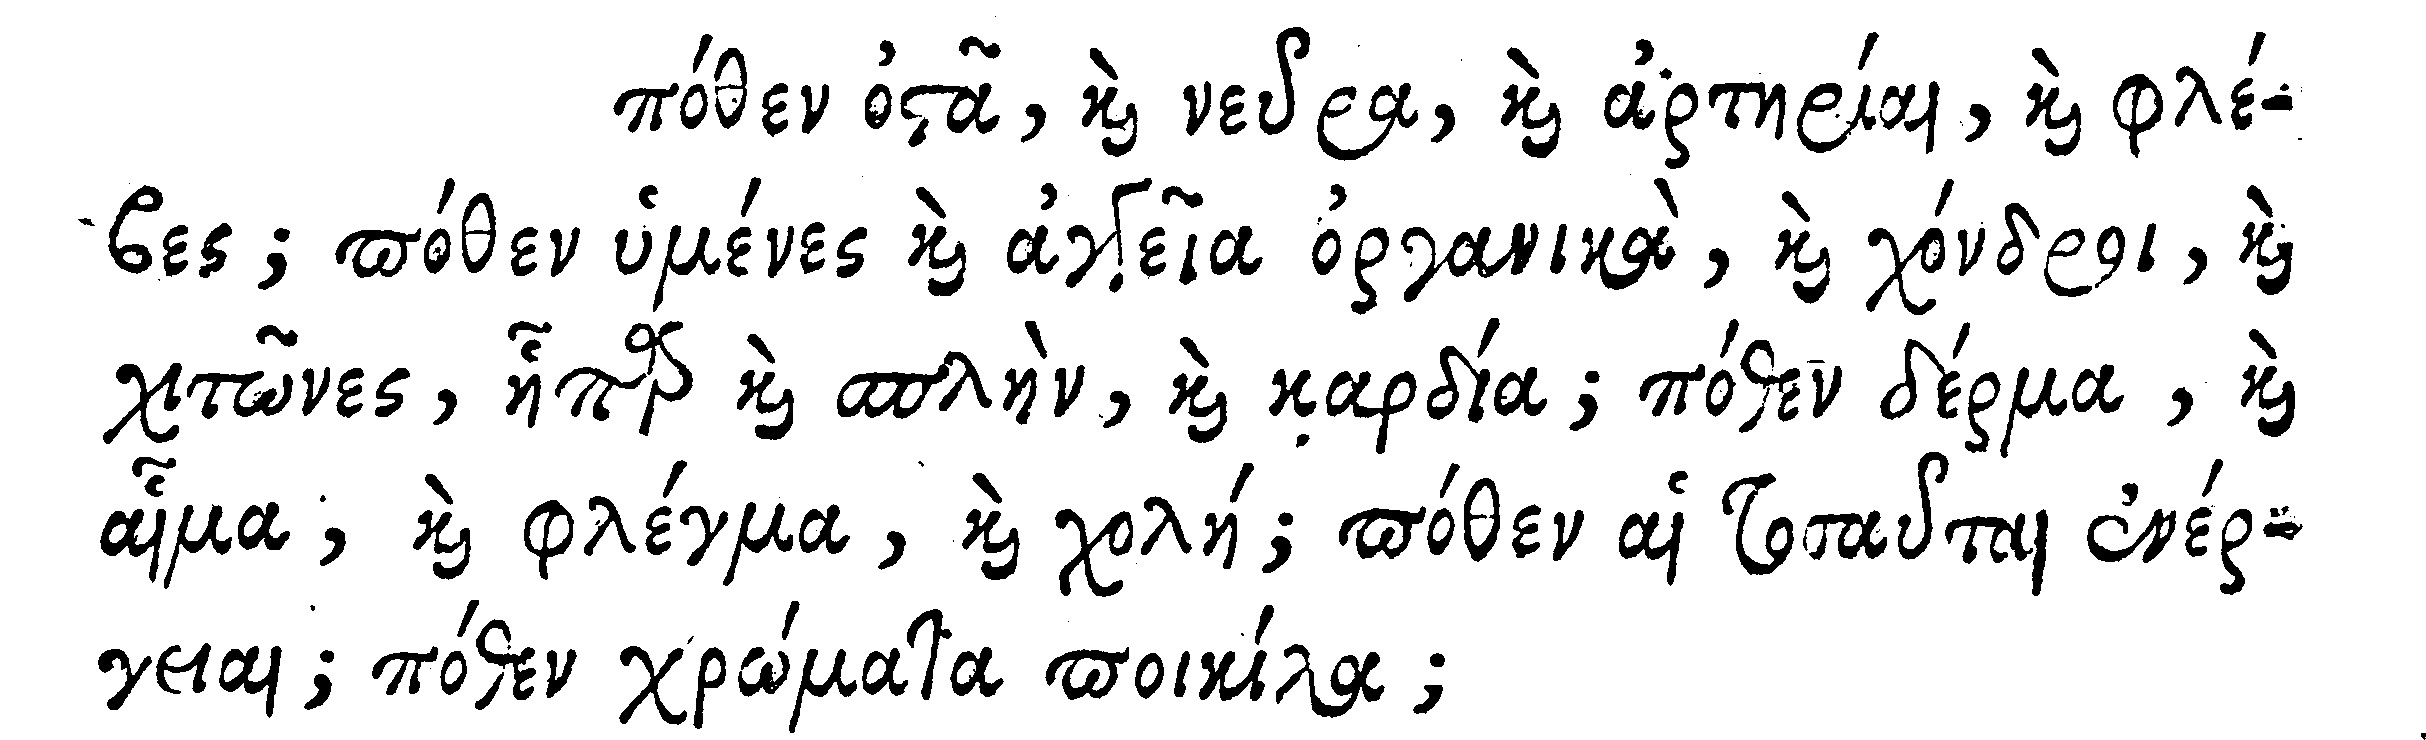 πόθεν ὀστᾶ, καὶ νεῦρα, καὶ ἀρτηρίαι, καὶ φλέ-
βες; πόθεν ὑμένες καὶ ἀγγεῖα ὀργανικὰ, καὶ χόνδροι, καὶ
χιτῶνες, ἧπαρ καὶ σπλὴν, καὶ καρδία; πόθεν δέρμα, καὶ
αἷμα, καὶ φλέγμα, καὶ χολή; πόθεν αἱ τοσαῦται ἐνέρ-
γειαι; πόθεν χρώματα ποικίλα;